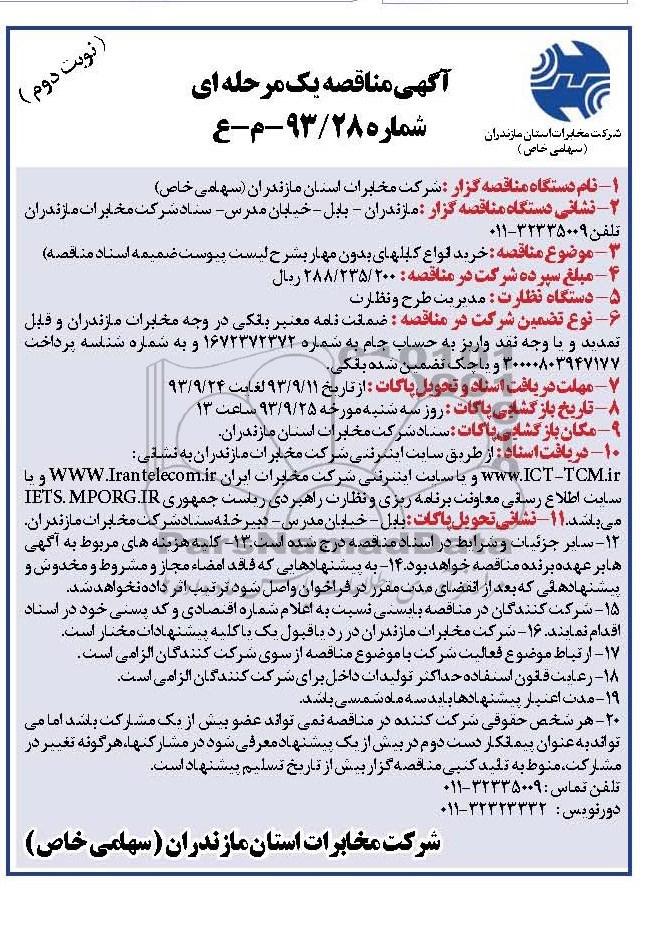 (نوبت دوم)
آگهی مناقصه یک مرحله ای
شماره ۹۳/۲۸-م-ع
شرکت مخابرات استان مازندران
(سهامی خاص)
۱- نام دستگاه مناقصه گزار : شرکت مخابرات استان مازندران (سهامی خاص)
۲- نشانی دستگاه مناقصه گزار : مازندران - بابل - خیابان مدرس- ستاد شرکت مخابرات مازندران
تلفن ۳۲۳۳۵۰۰۹-۰۱۱
۳- موضوع مناقصه : خرید انواع کابلهای بدون مهار بشرح لیست پیوست ضمیمه اسناد مناقصه)
۴- مبلغ سپرده شرکت در مناقصه : ۲۸۸/۲۳۵/۲۰۰ ریال
۵- دستگاه نظارت : مدیریت طرح و نظارت
۶- نوع تضمین شرکت در مناقصه : ضمانت نامه معتبر بانکی در وجه مخابرات مازندران و قابل
تمدید و یا وجه نقد واریز به حساب جام به شماره ۱۶۷۲۳۷۲۳۷۲ و به شماره شناسه پرداخت
۳۰۰۰۰۸۰۳۹۴۷۱۷۷ و یا چک تضمین شده بانکی.
۷- مهلت دریافت اسناد و تحویل پاکات : از تاریخ ۹۳/۹/۱۱ لغایت ۹۳/۹/۲۴
۸- تاریخ بازگشایی پاکات : روز سه شنبه مورخه ۹۳/۹/۲۵ ساعت ۱۳
۹- مکان بازگشایی پاکات : ستاد شرکت مخابرات استان مازندران.
۱۰- دریافت اسناد : از طریق سایت اینترنتی شرکت مخابرات مازندران به نشانی :
www.ICT-TCM.ir و یا سایت اینترنتی شرکت مخابرات ایران WWW.Irantelecom.ir و یا
سایت اطلاع رسانی معاونت برنامه ریزی و نظارت راهبردی ریاست جمهوری IETS.MPORG.IR
می باشد. ۱۱- نشانی تحویل پاکات : بابل - خیابان مدرس- دبیرخانه ستاد شرکت مخابرات مازندران.
۱۲- سایر جزئیات و شرایط در اسناد مناقصه درج شده است. ۱۳- کلیه هزینه های مربوط به آگهی
ها بر عهده برنده مناقصه خواهد بود. ۱۴- به پیشنهادهایی که فاقد امضاء مجاز و مشروط و مخدوش و
پیشنهادهائی که بعد از انقضای مدت مقرر در فراخوان واصل شود ترتیب اثر داده نخواهد شد.
۱۵- شرکت کنندگان در مناقصه بایستی نسبت به اعلام شماره اقتصادی و کد پستی خود در اسناد
اقدام نمایند. ۱۶- شرکت مخابرات مازندران در رد یا قبول یک یا کلیه پیشنهادات مختار است.
۱۷- ارتباط موضوع فعالیت شرکت با موضوع مناقصه از سوی شرکت کنندگان الزامی است.
۱۸- رعایت قانون استفاده حداکثر تولیدات داخل برای شرکت کنندگان الزامی است.
۱۹- مدت اعتبار پیشنهادها باید سه ماه شمسی باشد.
۲۰- هر شخص حقوقی شرکت کننده در مناقصه نمی تواند عضو بیش از یک مشارکت باشد اما می
تواند به عنوان پیمانکار دست دوم در بیش از یک پیشنهاد معرفی شود در مشارکتها، هر گونه تغییر در
مشارکت، منوط به تائید کتبی مناقصه گزار پیش از تاریخ تسلیم پیشنهاد است.
تلفن تماس : ۳۲۳۳۵۰۰۹-۰۱۱
دورنویس : ۳۲۳۲۳۳۳۲-۰۱۱
شرکت مخابرات استان مازندران (سهامی خاص)
ParsNamadData